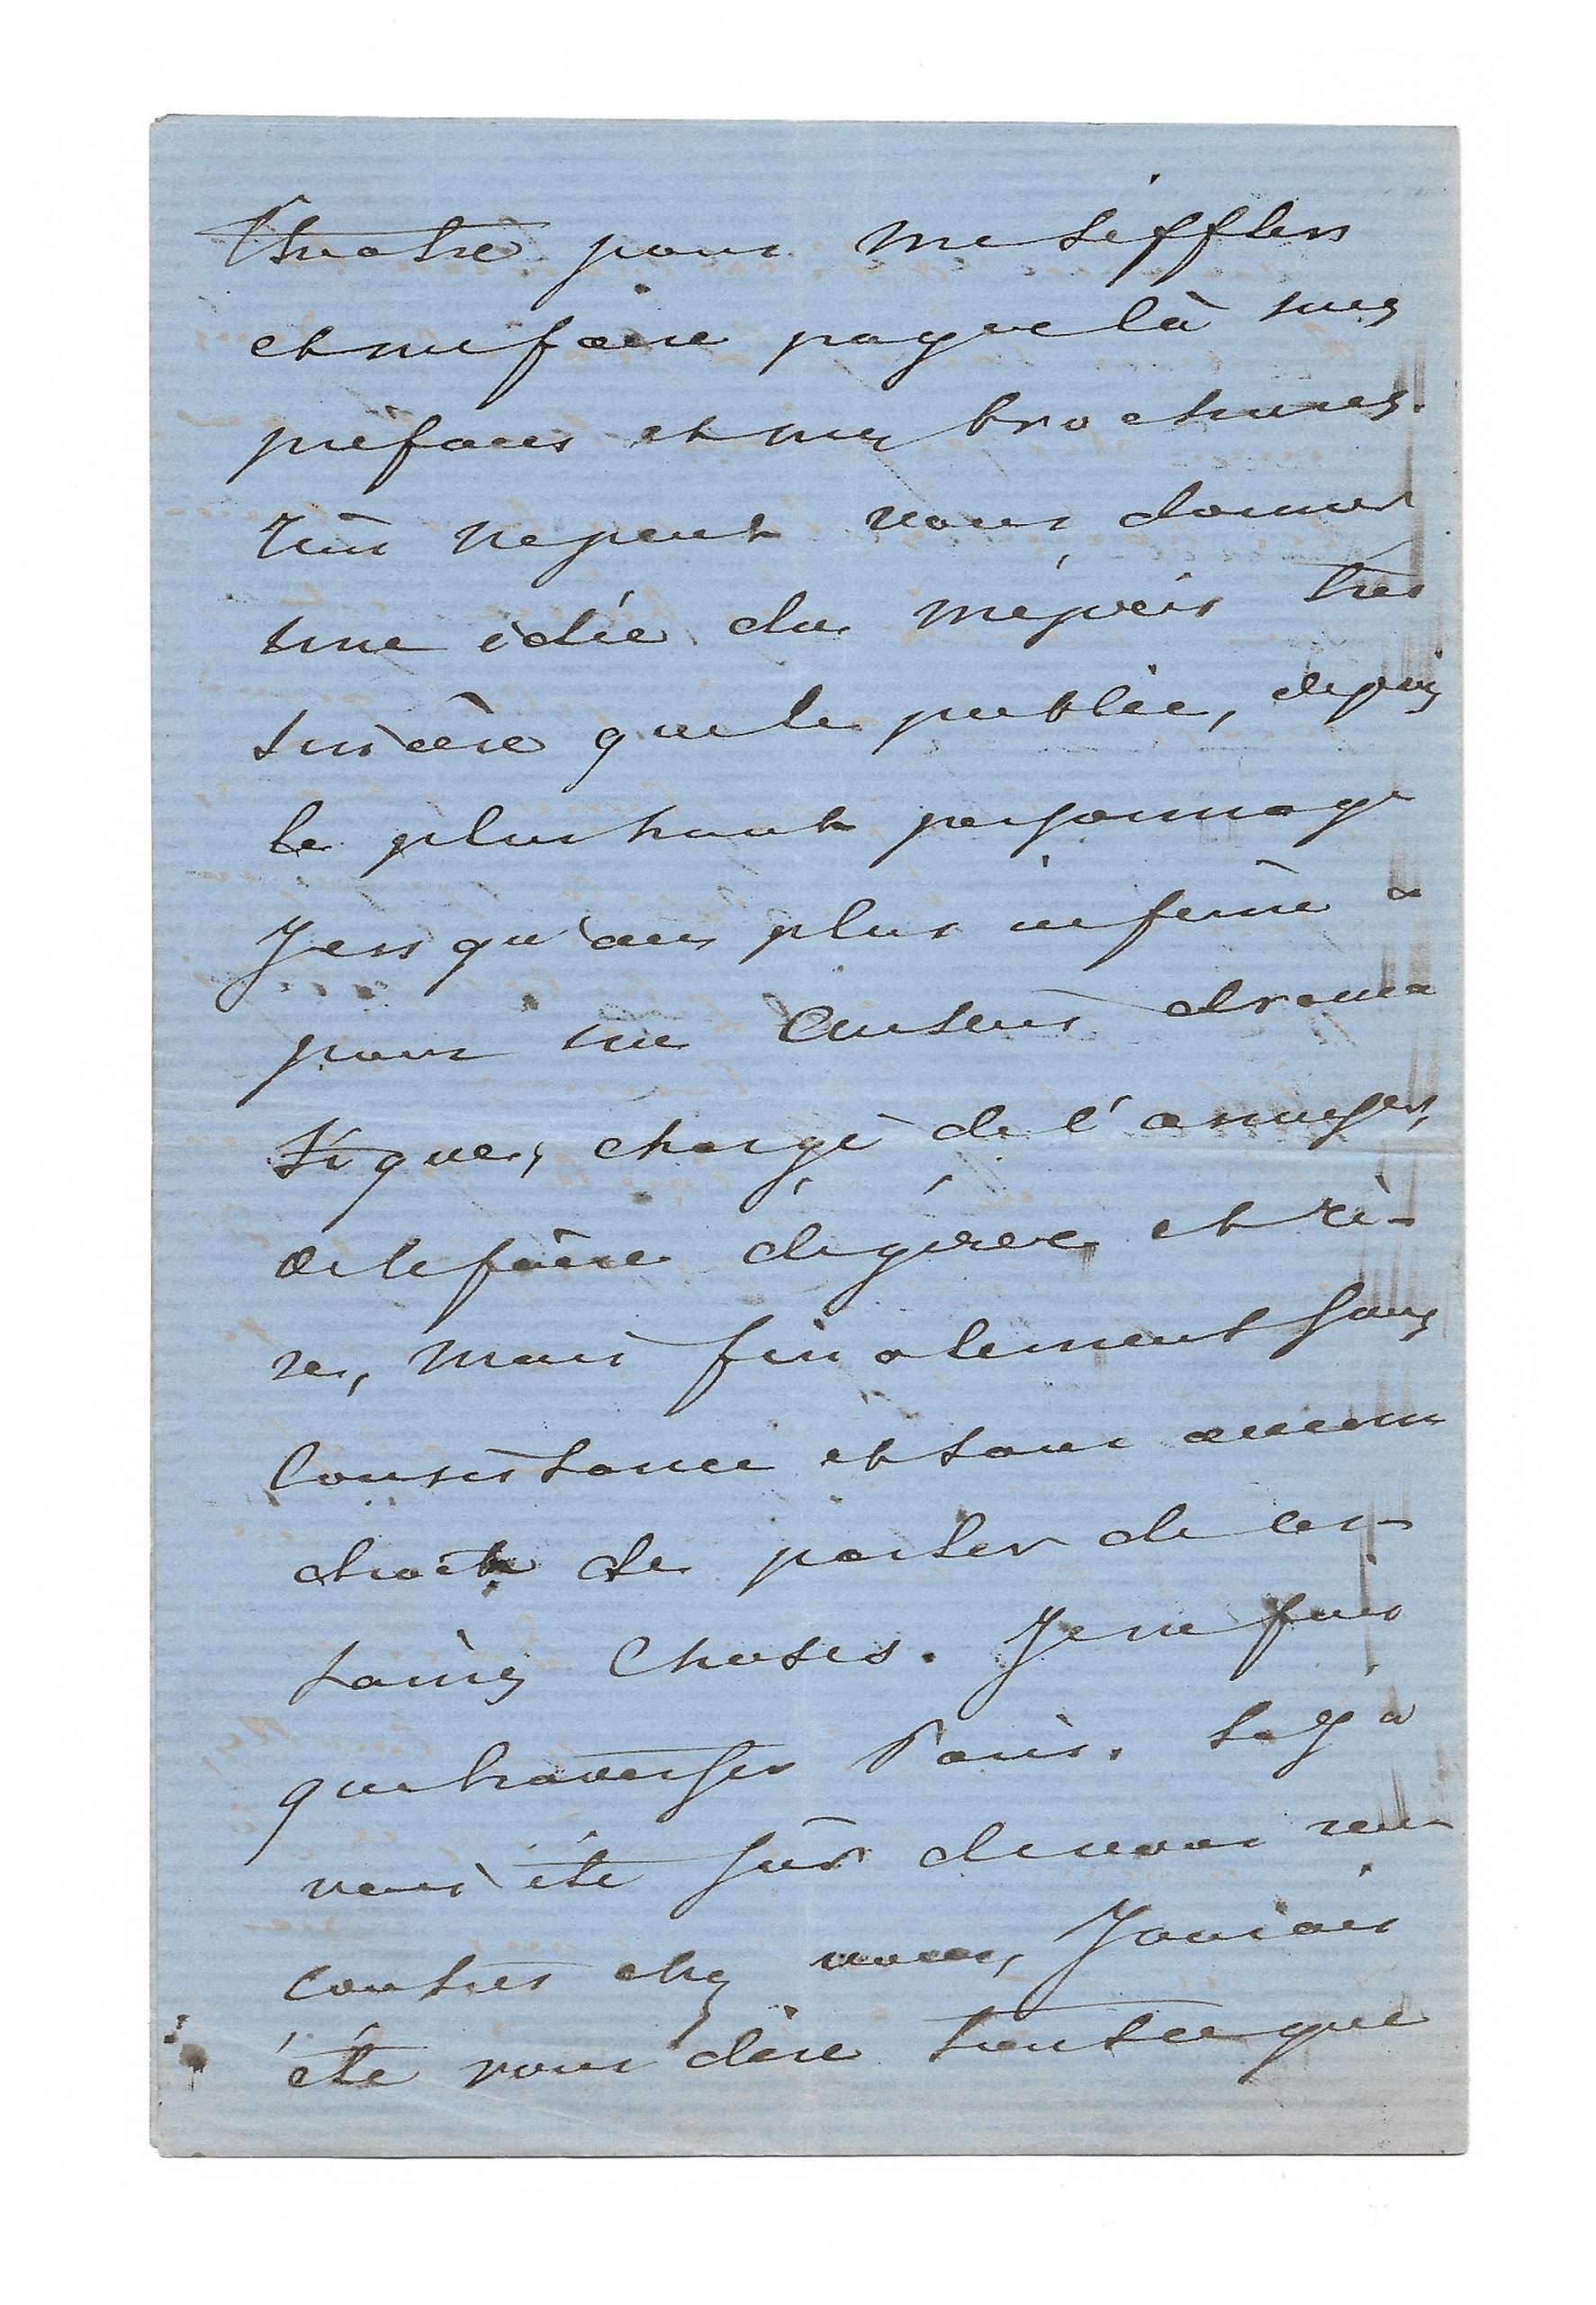 théatre pour me siffler
et me faire payer là mes
préfaces et mes brochures.
Rien ne peut vous donner
une idée du mépris très
sincère que le public, depuis
le plus haut personnage
jusqu'au plus infime a
pour un auteur drama
tique, chargé de l'amuser,
de le faire digérer et ri-
re, mais finalement sans
consistance et sans aucun
droit de parler de cer-
taines choses. Je ne fais
que traverser Paris. Si j'a
vais été sûr de vous ren
contrer chez vous, j'aurais
été vous dire tout ce que